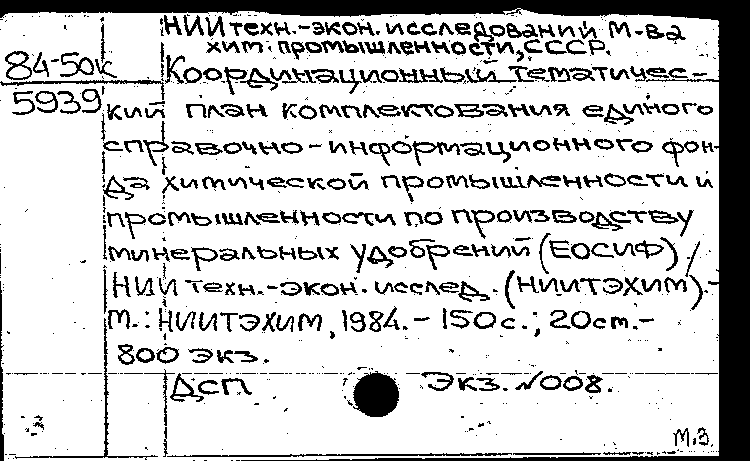 НИИ техн.-экон. исследований М-ва
хим. промышленности, СССР.
84-50к Координационный тематичес-
5939 кий план комплектования единого
справочно-информационного фон-
да химической промышленности и
промышленности по производству
минеральных удобрений (ЕОСИФ) /
НИИ техн.-экон. исслед. (НИИТЭХИМ).-
М.: НИИТЭХИМ, 1984. - 150 с.; 20 см.-
800 экз.
ДСП Экз. №008.
3 М.З